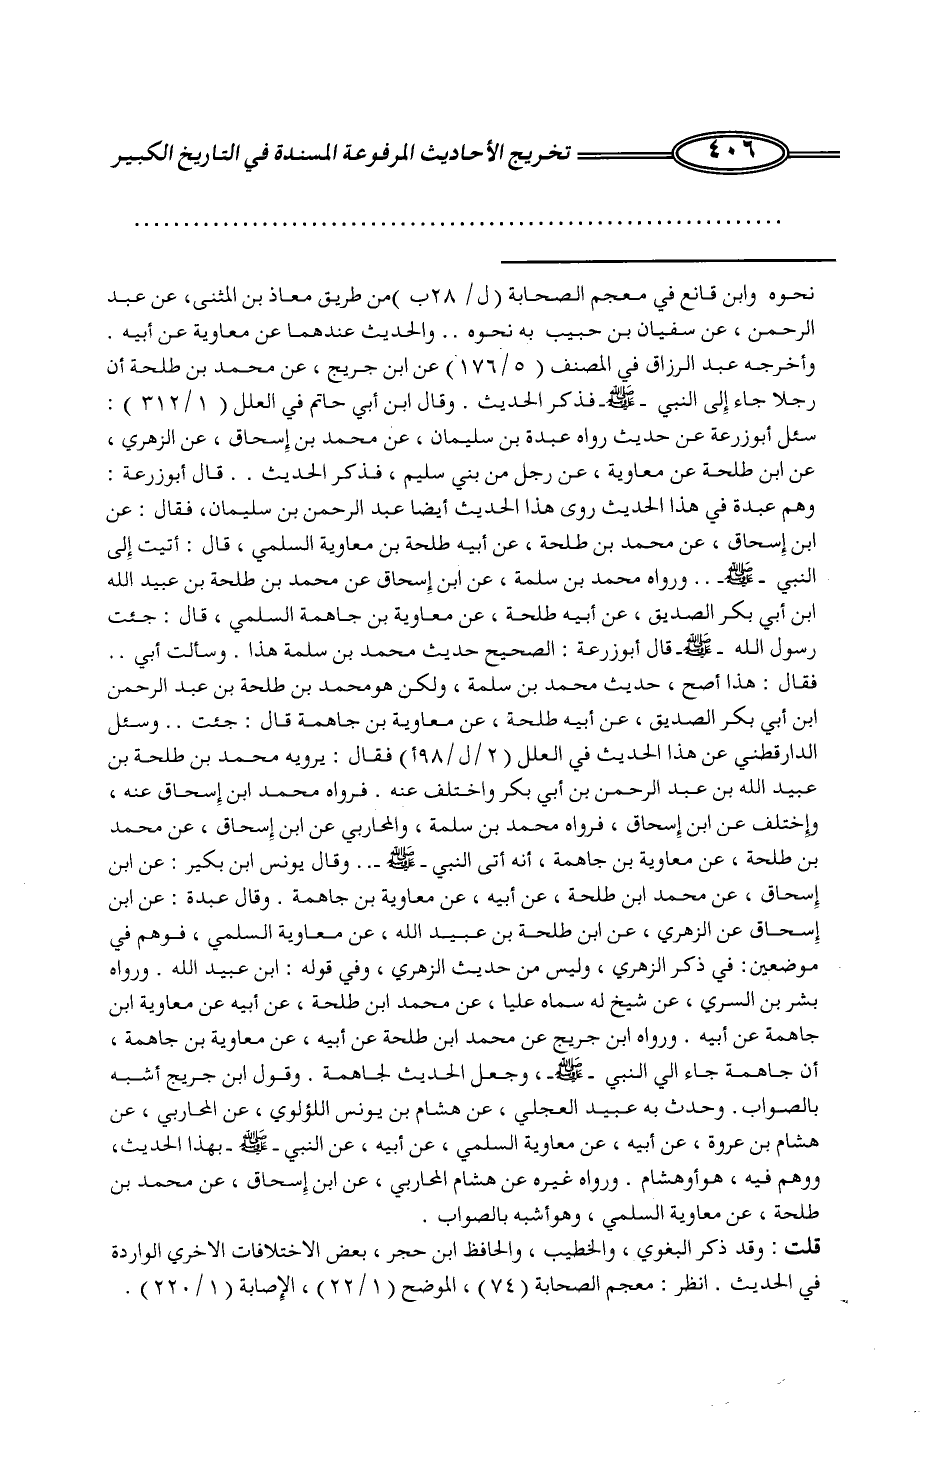 ٤٠٦ تخريج الأحاديث المرفوعة المسندة في التاريخ الكبير
................................................................
نحوه وابن قانع في معجم الصحابة (ل/ ٢٨ب )من طريق معاذ بن المثنى، عن عبد
الرحمن ، عن سفيان بن حبيب به نحوه .. والحديث عندهما عن معاوية عن أبيه .
وأخرجه عبد الرزاق في المصنف ( ٥/ ١٧٦) عن ابن جريج ، عن محمد بن طلحة أن
رجلا جاء إلى النبي ـ ﷺ ـ فذكر الحديث . وقال ابن أبي حاتم في العلل ( ١/ ٣١٢ ) :
سئل أبوزرعة عن حديث رواه عبدة بن سليمان ، عن محمد بن إسحاق ، عن الزهري ،
عن ابن طلحة عن معاوية ، عن رجل من بني سليم ، فذكر الحديث . . قال أبوزرعة :
وهم عبدة في هذا الحديث روى هذا الحديث أيضا عبد الرحمن بن سليمان، فقال : عن
ابن إسحاق ، عن محمد بن طلحة ، عن أبيه طلحة بن معاوية السلمي ، قال : أتيت إلى
النبي ـ ﷺ ـ .. ورواه محمد بن سلمة ، عن ابن إسحاق عن محمد بن طلحة بن عبيد الله
ابن أبي بكر الصديق ، عن أبيه طلحة ، عن معاوية بن جاهمة السلمي ، قال : جئت
رسول الله ـ ﷺ ـ قال أبوزرعة : الصحيح حديث محمد بن سلمة هذا . وسألت أبي ..
فقال : هذا أصح ، حديث محمد بن سلمة ، ولكن هومحمد بن طلحة بن عبد الرحمن
ابن أبي بكر الصديق ، عن أبيه طلحة ، عن معاوية بن جاهمة قال : جئت .. وسئل
الدارقطني عن هذا الحديث في العلل (٢/ل/٩٨أ) فقال : يرويه محمد بن طلحة بن
عبيد الله بن عبد الرحمن بن أبي بكر واختلف عنه . فرواه محمد ابن إسحاق عنه ،
وإختلف عن ابن إسحاق ، فرواه محمد بن سلمة ، والمحاربي عن ابن إسحاق ، عن محمد
بن طلحة ، عن معاوية بن جاهمة ، أنه أتى النبي ـ ﷺ ـ .. وقال يونس ابن بكير : عن ابن
إسحاق ، عن محمد ابن طلحة ، عن أبيه ، عن معاوية بن جاهمة . وقال عبدة : عن ابن
إسحاق عن الزهري ، عن ابن طلحة بن عبيد الله ، عن معاوية السلمي ، فوهم في
موضعين: في ذكر الزهري ، وليس من حديث الزهري ، وفي قوله : ابن عبيد الله . ورواه
بشر بن السري ، عن شيخ له سماه عليا ، عن محمد ابن طلحة ، عن أبيه عن معاوية ابن
جاهمة عن أبيه . ورواه ابن جريج عن محمد ابن طلحة عن أبيه ، عن معاوية بن جاهمة ،
أن جاهمة جاء الي النبي ـ ﷺ ـ ، وجعل الحديث لجاهمة . وقول ابن جريج أشبه
بالصواب. وحدث به عبيد العجلي ، عن هشام بن يونس اللؤلوي ، عن المحاربي ، عن
هشام بن عروة ، عن أبيه ، عن معاوية السلمي ، عن أبيه ، عن النبي ـ ﷺ ـ بهذا الحديث،
ووهم فيه ، هوأوهشام . ورواه غيره عن هشام المحاربي ، عن ابن إسحاق ، عن محمد بن
طلحة ، عن معاوية السلمي ، وهوأشبه بالصواب .
قلت : وقد ذكر البغوي ، والخطيب ، والحافظ ابن حجر ، بعض الاختلافات الاخري الواردة
في الحديث . انظر : معجم الصحابة (٧٤) ، الموضح (١/ ٢٢) ، الإصابة (١/ ٢٢٠) .